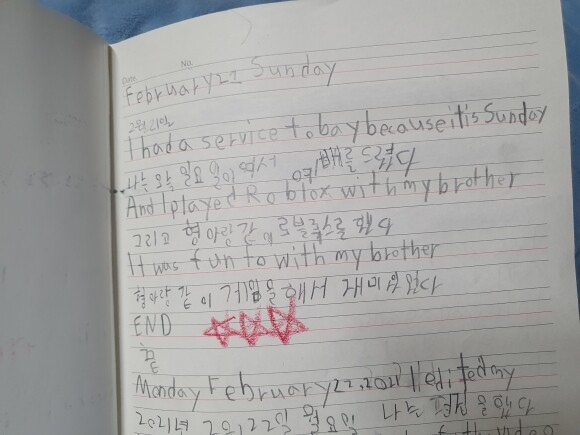 Date No.
February 22 Sunday
2월 21일
I had a service tobay because it is Sunday
나는 오늘 일요일 예배를 드렸다
And I played Roblox with my brother
그리고 형아랑 같이 로블록스를 했다
It was fun to with my brother
형아랑 같이 게임을 해서 재미있었다
END
끝
Monday February 22, 2021 I edited my
2021년 2월 22일 월요일 나는 했다